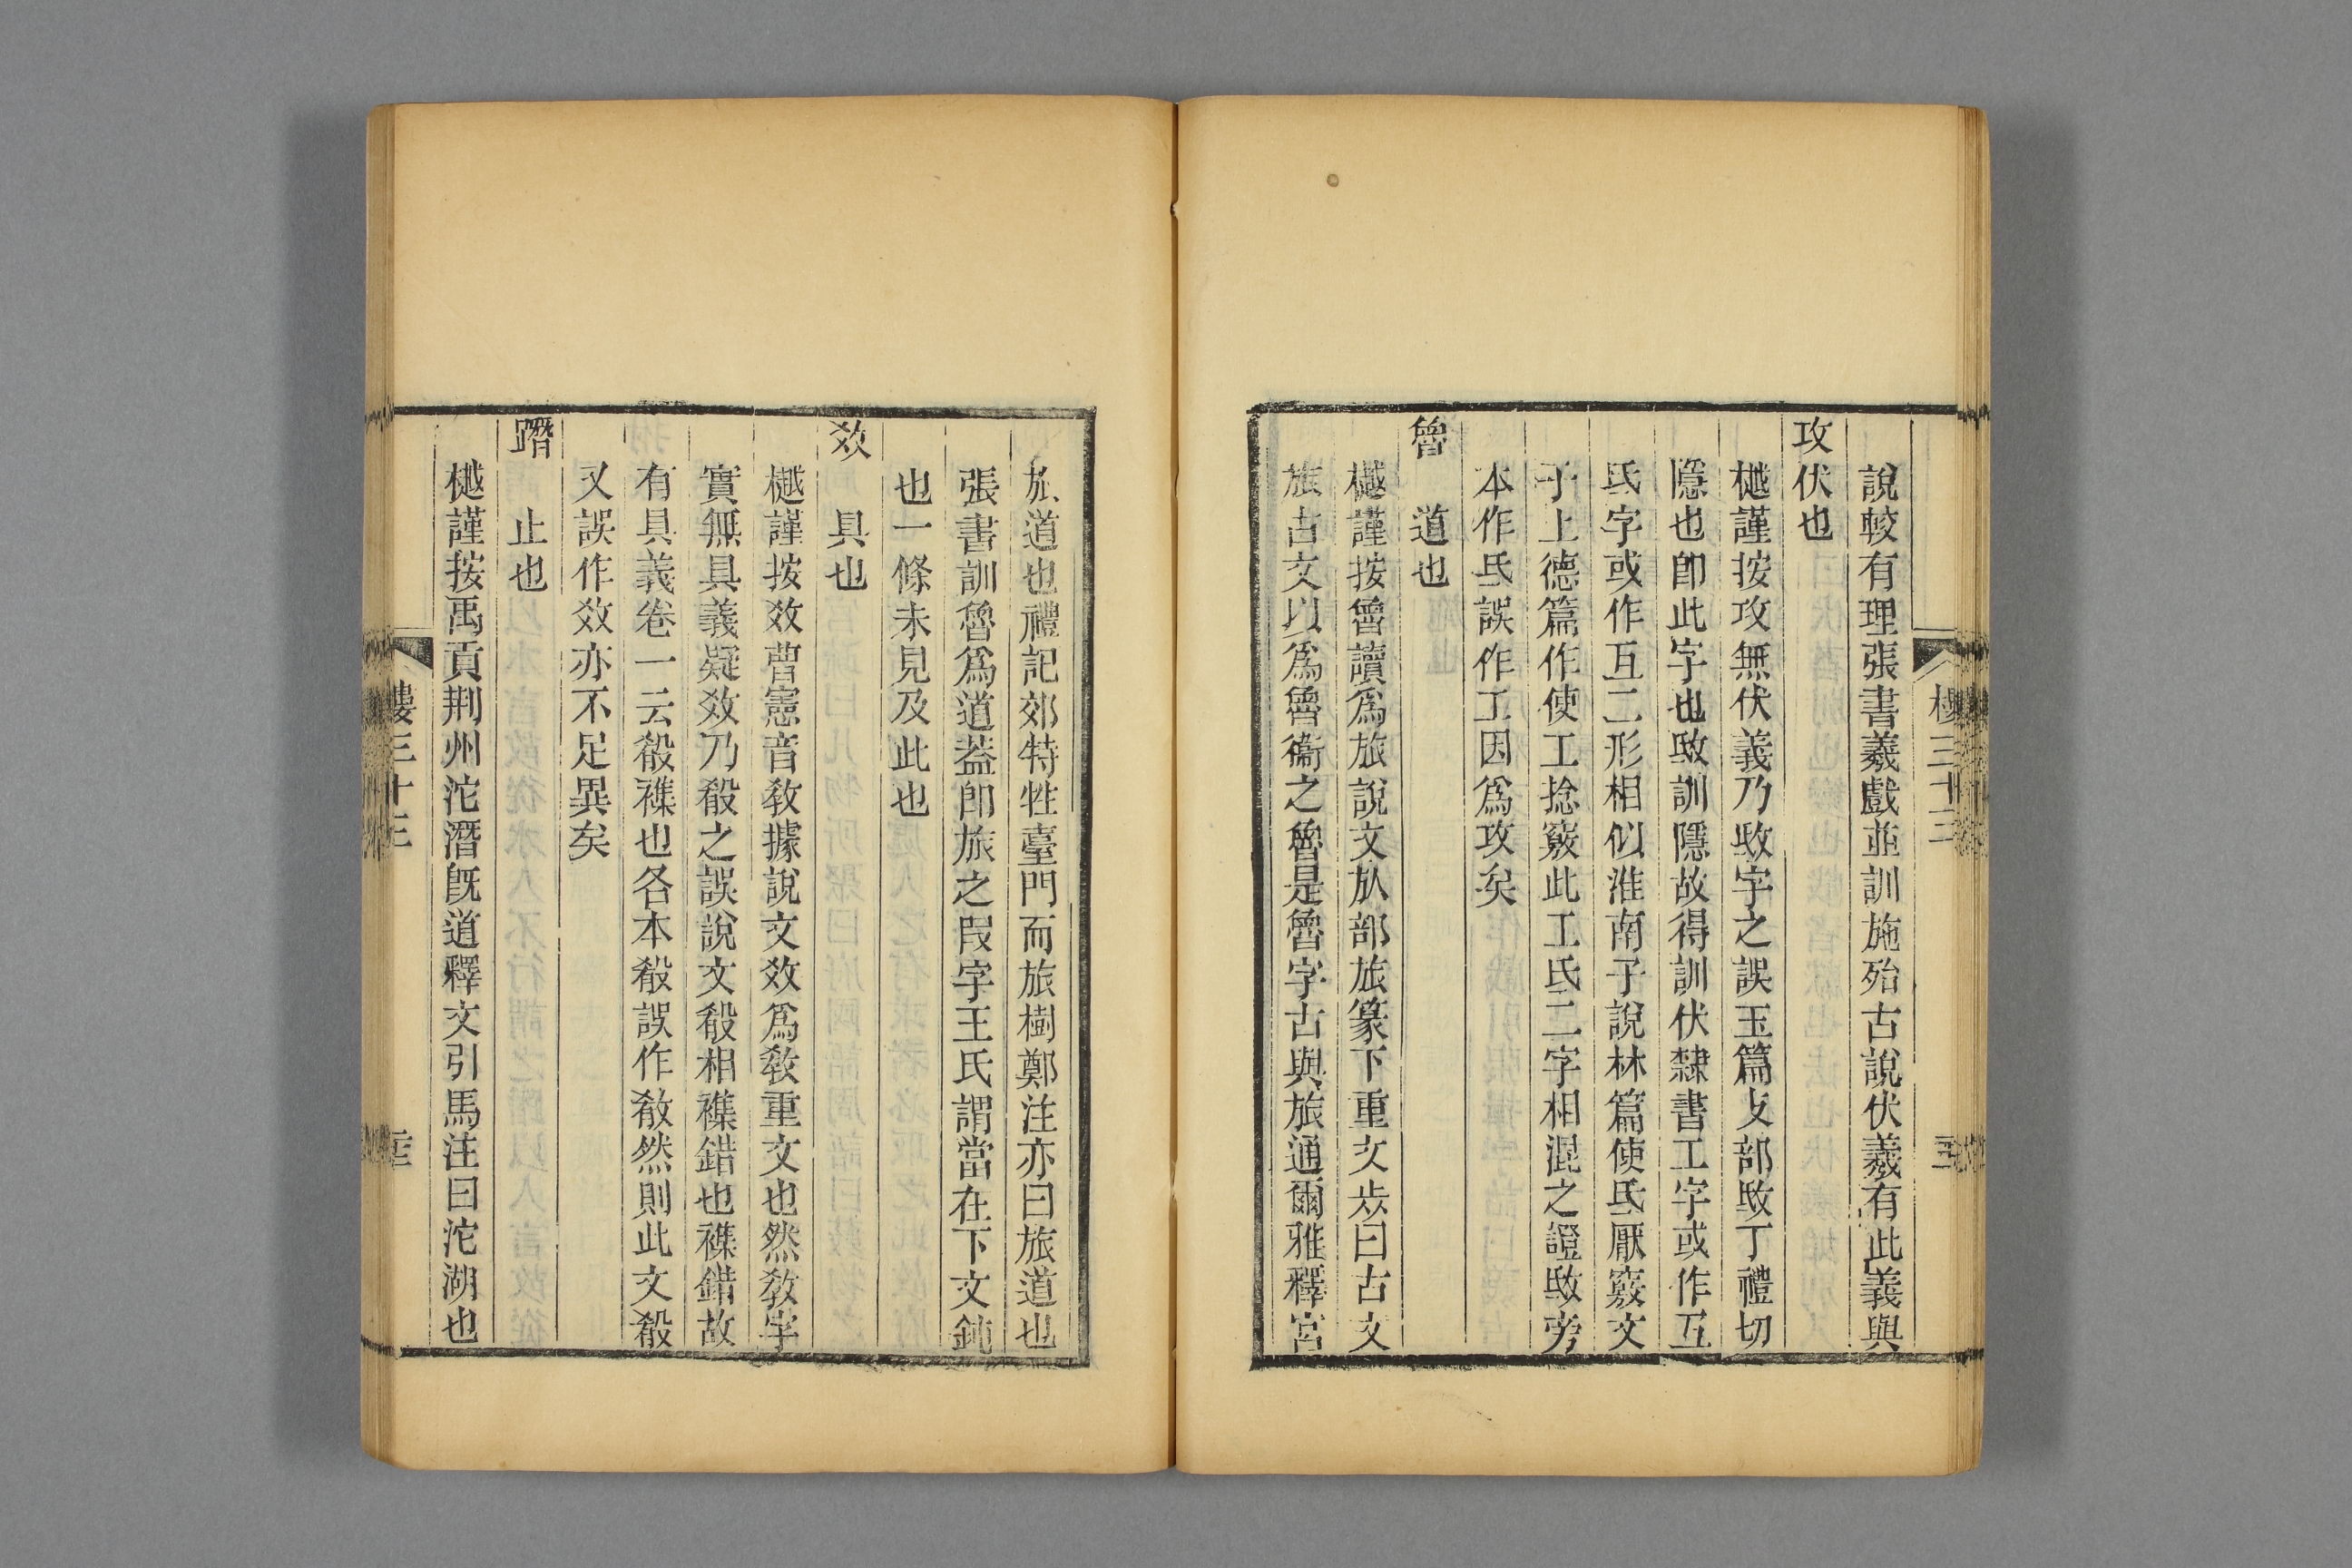 說較有理張書羲戲並訓施殆古說伏羲有此義與
攻伏也
樾謹按攻無伏義乃㪆字之誤玉篇攴部㪆丁禮切
隱也卽此字也㪆訓隱故得訓伏隸書工字或作互
氐字或作互二形相似淮南子說林篇使氐厭竅文
子上德篇作使工捻竅此工氐二字相混之證㪆旁
本作氐誤作工因爲攻矣
魯 道也
樾謹按魯讀爲旅說文㫃部旅篆下重文㞢曰古文
旅古文以爲魯衞之魯是魯字古與旅通爾雅釋宮
旅道也禮記郊特牲臺門而旅樹鄭注亦曰旅道也
張書訓魯爲道葢卽旅之叚字王氏謂當在下文鈍
也一條未見及此也
效 具也
樾謹按效曹憲音敎據說文效爲敎重文也然敎字
實無具義疑效乃殽之誤說文殽相襍錯也襍錯故
有具義卷一云殽襍也各本殽誤作㪣然則此文殽
又誤作效亦不足異矣
蹯 止也
樾謹按禹貢荆州沱潛旣道釋文引馬注曰沱湖也
樓三十三